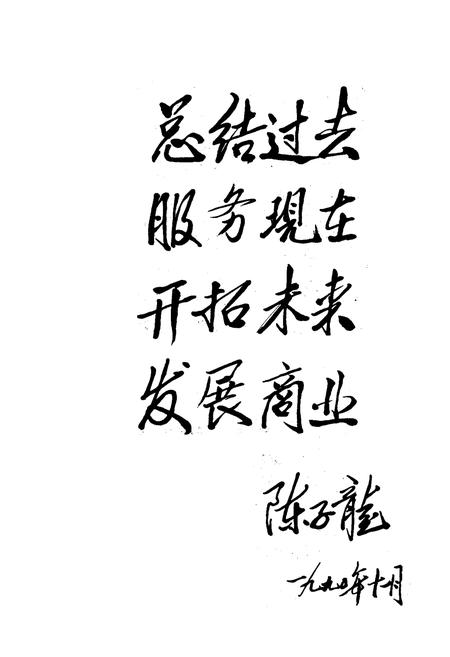 总结过去
服务現在
开拓未来
发展商业
陈子龍
一九九〇年十月